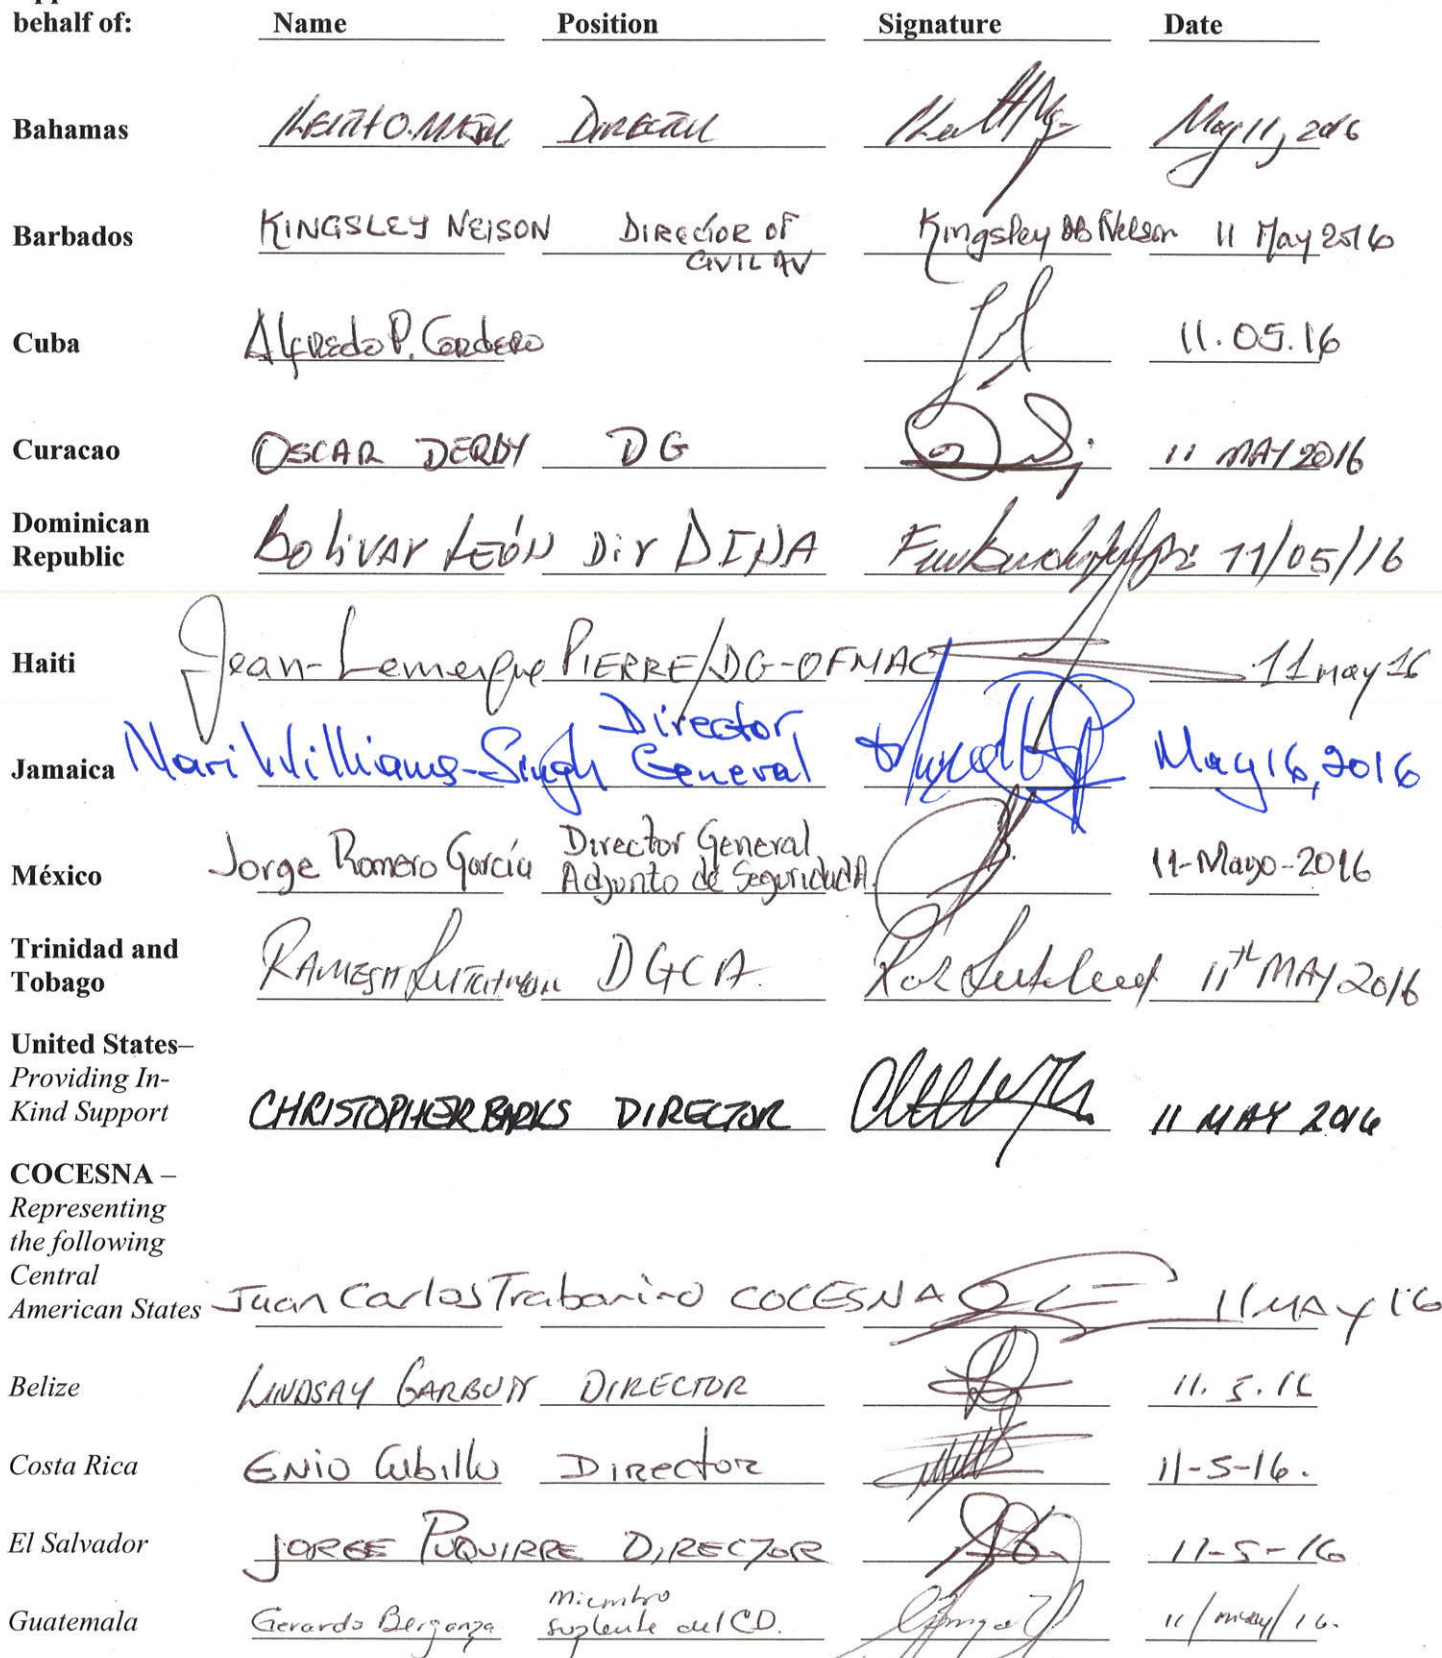 behalf of: Name Position Signature Date
Bahamas DIRECTOR May 11, 2016
Barbados KINGSLEY NELSON DIRECTOR OF Kingsley Nelson 11 May 2016
CIVIL AV
Cuba Alfredo P. Cordero 11.05.16
Curacao OSCAR DERBY DG 11 MAY 2016
Dominican
Republic Bolivar León Dir DINA 11/05/16
Haiti Jean-Lemerque PIERRE/DG-OFNAC 11 may 16
Director
Jamaica Nari Williams-Singh General May 16, 2016
Director General
México Jorge Romero García Adjunto de Seguridad A. 11-Mayo-2016
Trinidad and
Tobago RAMESH DGCA. 11th MAY 2016
United States–
Providing In-
Kind Support CHRISTOPHER BARKS DIRECTOR 11 MAY 2016
COCESNA –
Representing
the following
Central
American States Juan Carlos Trabanino COCESNA 11 MAY 16
Belize LINDSAY GARBUTT DIRECTOR 11.5.16
Costa Rica ENIO Cubillo Director 11-5-16.
El Salvador JORGE PUQUIRRE DIRECTOR 11-5-16
Miembro
Guatemala Gerardo Berganza suplente del CD. 11/may/16.